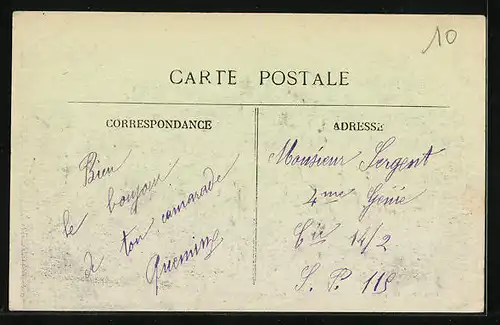 10
CARTE POSTALE
CORRESPONDANCE
Bien
le bonjour
de ton camarade
Quemin
ADRESSE
Monsieur Sergent
4me Génie
Cie 14/2
S. P. 115